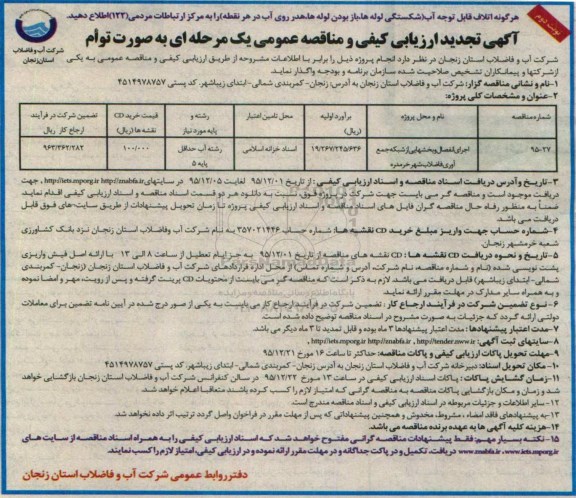 هرگونه اتلاف قابل توجه آب(شکستگی لوله ها،باز بودن لوله ها،هدر روی آب در هر نقطه)را به مرکز ارتباطات مردمی(۱۲۲)اطلاع دهید.
نوبت دوم
شرکت آب و فاضلاب
استان زنجان
آگهی تجدید ارزیابی کیفی و مناقصه عمومی یک مرحله ای به صورت توأم
شرکت آب و فاضلاب استان زنجان در نظر دارد انجام پروژه ذیل را برابر با اطلاعات مشروحه از طریق ارزیابی کیفی و مناقصه عمومی به یکی
از شرکتها و پیمانکاران تشخیص صلاحیت شده سازمان برنامه و بودجه واگذار نماید.
۱-نام و نشانی مناقصه گزار: شرکت آب و فاضلاب استان زنجان به آدرس: زنجان- کمربندی شمالی-ابتدای زیباشهر. کد پستی ۴۵۱۴۹۷۸۷۵۷
۲-عنوان و مشخصات کلی پروژه:
شماره مناقصه
نام و محل پروژه
برآورد اولیه (ریال)
محل تامین اعتبار
رشته و پایه مورد نیاز
قیمت خرید CD نقشه ها (ریال)
تضمین شرکت در فرآیند ارجاع کار ریال
۹۵-۲۷
اجرای انفصال و بخشهایی از شبکه جمع آوری فاضلاب شهر خرمدره
۱۹/۲۶۷/۲۴۵/۶۳۶
اسناد خزانه اسلامی
رشته آب حداقل پایه ۵
۱۰۰/۰۰۰
۹۶۳/۳۶۲/۲۸۲
۳-تاریخ و آدرس دریافت اسناد مناقصه و اسناد ارزیابی کیفی : از تاریخ ۹۵/۱۲/۰۱ لغایت ۹۵/۱۲/۰۵ در سایتهای http://iets.mporg.ir http://znabfa.ir , جهت
دریافت موجود است و مناقصه گر می بایست جهت شرکت در پروژه فوق نسبت به دانلود هر دو قسمت اسناد مناقصه و اسناد ارزیابی کیفی اقدام نماید.
ضمناً به منظور رفاه حال مناقصه گران فایل های اسناد مناقصه و اسناد ارزیابی کیفی پروژه تا زمان تحویل پیشنهادات از طریق سایت-های فوق قابل
دریافت می باشد.
۴-شماره حساب جهت واریز مبلغ خرید CD نقشه ها: شماره حساب ۳۵۷۰۲۱۴۴۶ به نام شرکت آب و فاضلاب استان زنجان نزد بانک کشاورزی
شعبه خرمشهر زنجان.
۵-تاریخ و نحوه دریافت CD نقشه ها : CD نقشه های مناقصه از تاریخ ۹۵/۱۲/۰۱ به جز ایام تعطیل از ساعت ۸ الی ۱۳ با ارائه اصل فیش واریزی
پشت نویسی شده (نام و شماره مناقصه، نام شرکت، آدرس و شماره تماس) از محل اداره قراردادهای شرکت آب و فاضلاب استان زنجان (زنجان- کمربندی
شمالی- ابتدای زیباشهر) قابل دریافت می باشد. لازم به ذکر است که مناقصه گر می بایست از محتویات CD پرینت گرفته و پس از رویت، مهر و امضا نموده
و به همراه سایر مدارک در مهلت مقرر ارائه نماید.
۶- نوع تضمین شرکت در فرآیند ارجاع کار : تضمین شرکت در فرآیند ارجاع کار می بایست به یکی از صور درج شده در آیین نامه تضمین برای معاملات
دولتی ارائه گردد که جزئیات به صورت مشروح در اسناد مناقصه توضیح داده شده است.
۷-مدت اعتبار پیشنهادها : مدت اعتبار پیشنهادها ۳ ماه بوده و قابل تمدید تا ۳ ماه دیگر می باشد.
۸-سایتهای ثبت آگهی: http://iets.mporg.ir http://znabfa.ir , http://tender.nww.ir ,
۹-مهلت تحویل پاکات ارزیابی کیفی و پاکات مناقصه: حداکثر تا ساعت ۱۶ مورخ ۹۵/۱۲/۲۱
۱۰- مکان تحویل اسناد: دبیرخانه شرکت آب و فاضلاب استان زنجان به آدرس زنجان- کمربندی شمالی - ابتدای زیباشهر. کد پستی ۴۵۱۴۹۷۸۷۵۷
۱۱- زمان گشایش پاکات : پاکات اسناد ارزیابی کیفی در ساعت ۱۳ مورخ ۹۵/۱۲/۲۲ در سالن کنفرانس شرکت آب و فاضلاب استان زنجان بازگشایی خواهد
شد و زمان و مکان بازگشایی پاکات مناقصه به مناقصه گرانی که امتیاز لازم را کسب کرده باشند متعاقباً اعلام خواهد شد.
۱۲- سایر اطلاعات و جزئیات مربوطه در اسناد ارزیابی کیفی و اسناد مناقصه مندرج است.
۱۳-به پیشنهادهای فاقد امضاء ، مشروط، مخدوش و همچنین پیشنهاداتی که پس از مهلت مقرر در فراخوان واصل گردد ترتیب اثر داده نخواهد شد.
۱۴-هزینه کلیه آگهی ها به عهده برنده مناقصه می باشد.
۱۵- نکته بسیار مهم: فقط پیشنهادات مناقصه گرانی مفتوح خواهد شد که اسناد ارزیابی کیفی را به همراه اسناد مناقصه از سایت های
www.znabfa.ir ، www.iets.mporg.ir دریافت، تکمیل و در پاکت جداگانه و در مهلت مقرر ارائه نموده و در ارزیابی کیفی، امتیاز لازم را کسب نمایند.
دفتر روابط عمومی شرکت آب و فاضلاب استان زنجان